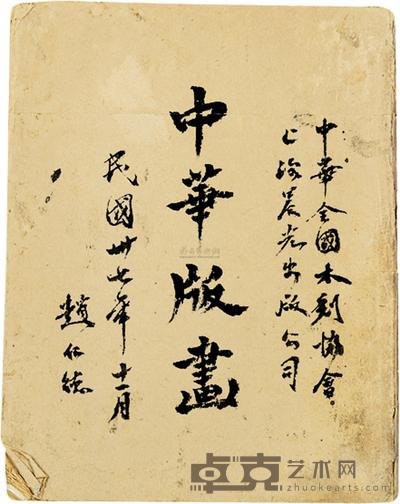 中華全國木刻協會。
上海晨光出版公司
中華版畫
民國卅七年十一月
趙仁德
卓克艺术网
zhuokearts.com